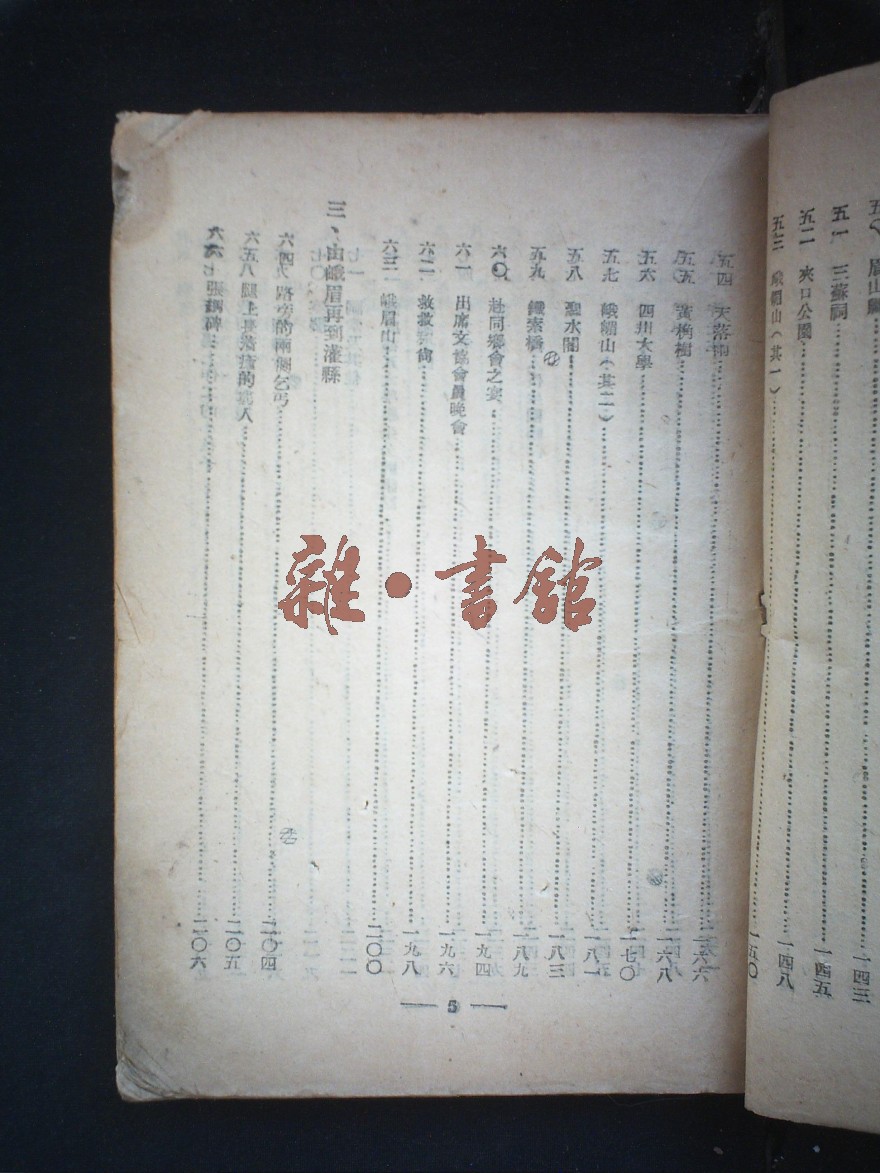 五〇 眉山縣……一四三
五一 三蘇祠……一四五
五二 夾口公園……一四八
五三 峨嵋山(其一)……一五〇
五四 天落雨……一六六
五五 黃桷樹……一六八
五六 四川大學……一七〇
五七 峨嵋山(其二)……一八一
五八 聖水閣……一八三
五九 鐵索橋……一八九
六〇 赴同鄉會之宴……一九四
六一 出席文協會員晚會……一九六
六二 救救……一九八
六三 峨眉山……二〇〇
三、由峨眉再到灌縣
六四 路旁的兩個乞丐……二〇四
六五 腿上長着瘡的病人……二〇五
六六 張獻碑……二〇六
— 5 —
雜·書館